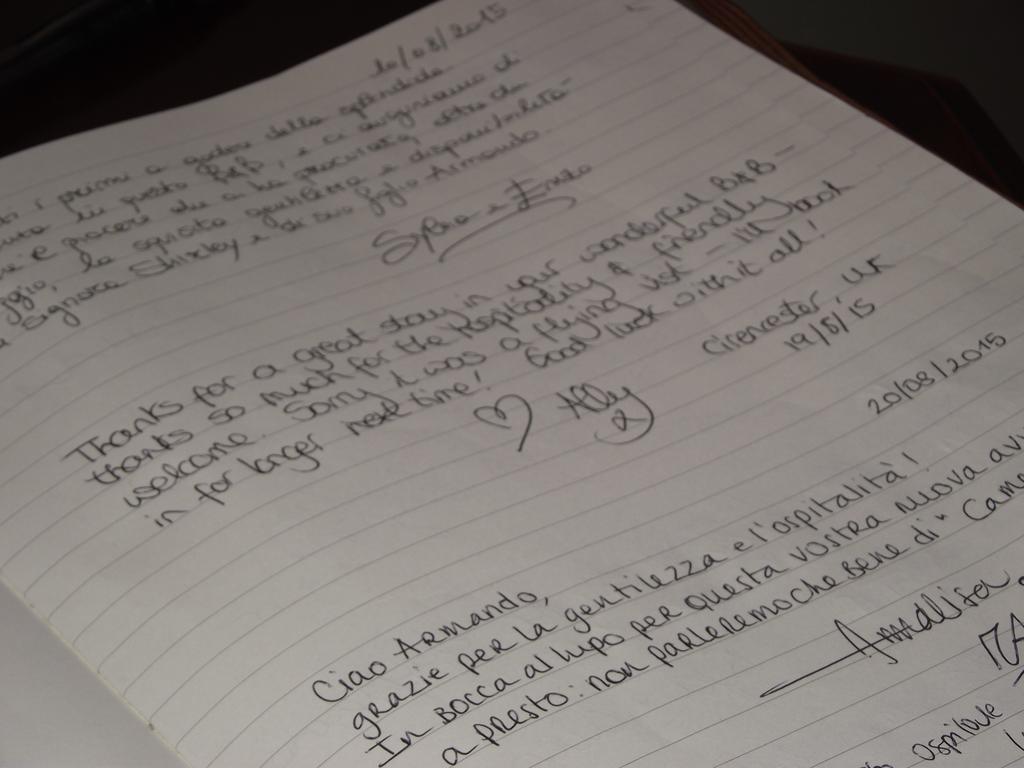 10/08/2015
i primi a godere della splendida
questo B&B, e ci auguriamo di
piacere che ci ha procurato, oltre che
la squisita gentilezza e disponibilità
Signora Shirley e di suo figlio Armando.
Thanks for a great stay in your wonderful B&B –
thanks so much for the hospitality & friendly
welcome. Sorry I was a flying visit – I'll head
in for longer next time! Good luck with it all!
♡ Ally
Cirencester, UK
19/8/15
20/08/2015
Ciao Armando,
grazie per la gentilezza e l'ospitalità!
In bocca al lupo per questa vostra nuova avv
a presto: non parleremo che bene di "Cam
Annalisa
ospitale